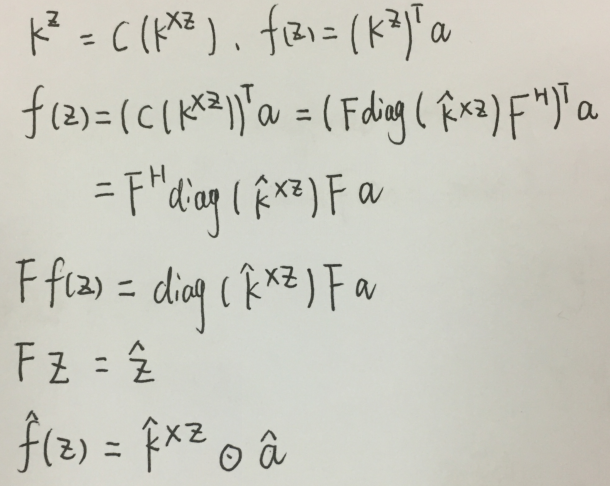 K^Z = C(K^{XZ}). f(z) = (K^Z)^T a
f(z) = (C(K^{XZ}))^T a = (F diag(k̂^{XZ}) F^H)^T a
= F^H diag(k̂^{XZ}) F a
F f(z) = diag(k̂^{XZ}) F a
F z = ẑ
f̂(z) = k̂^{XZ} ⊙ â